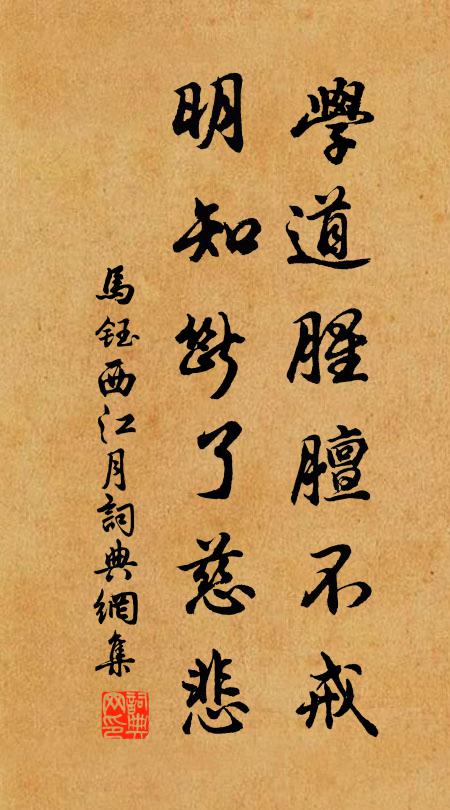 學道腥膻不戒
明知斷了慈悲
馬鈺西江月詞典網集
詞典網印